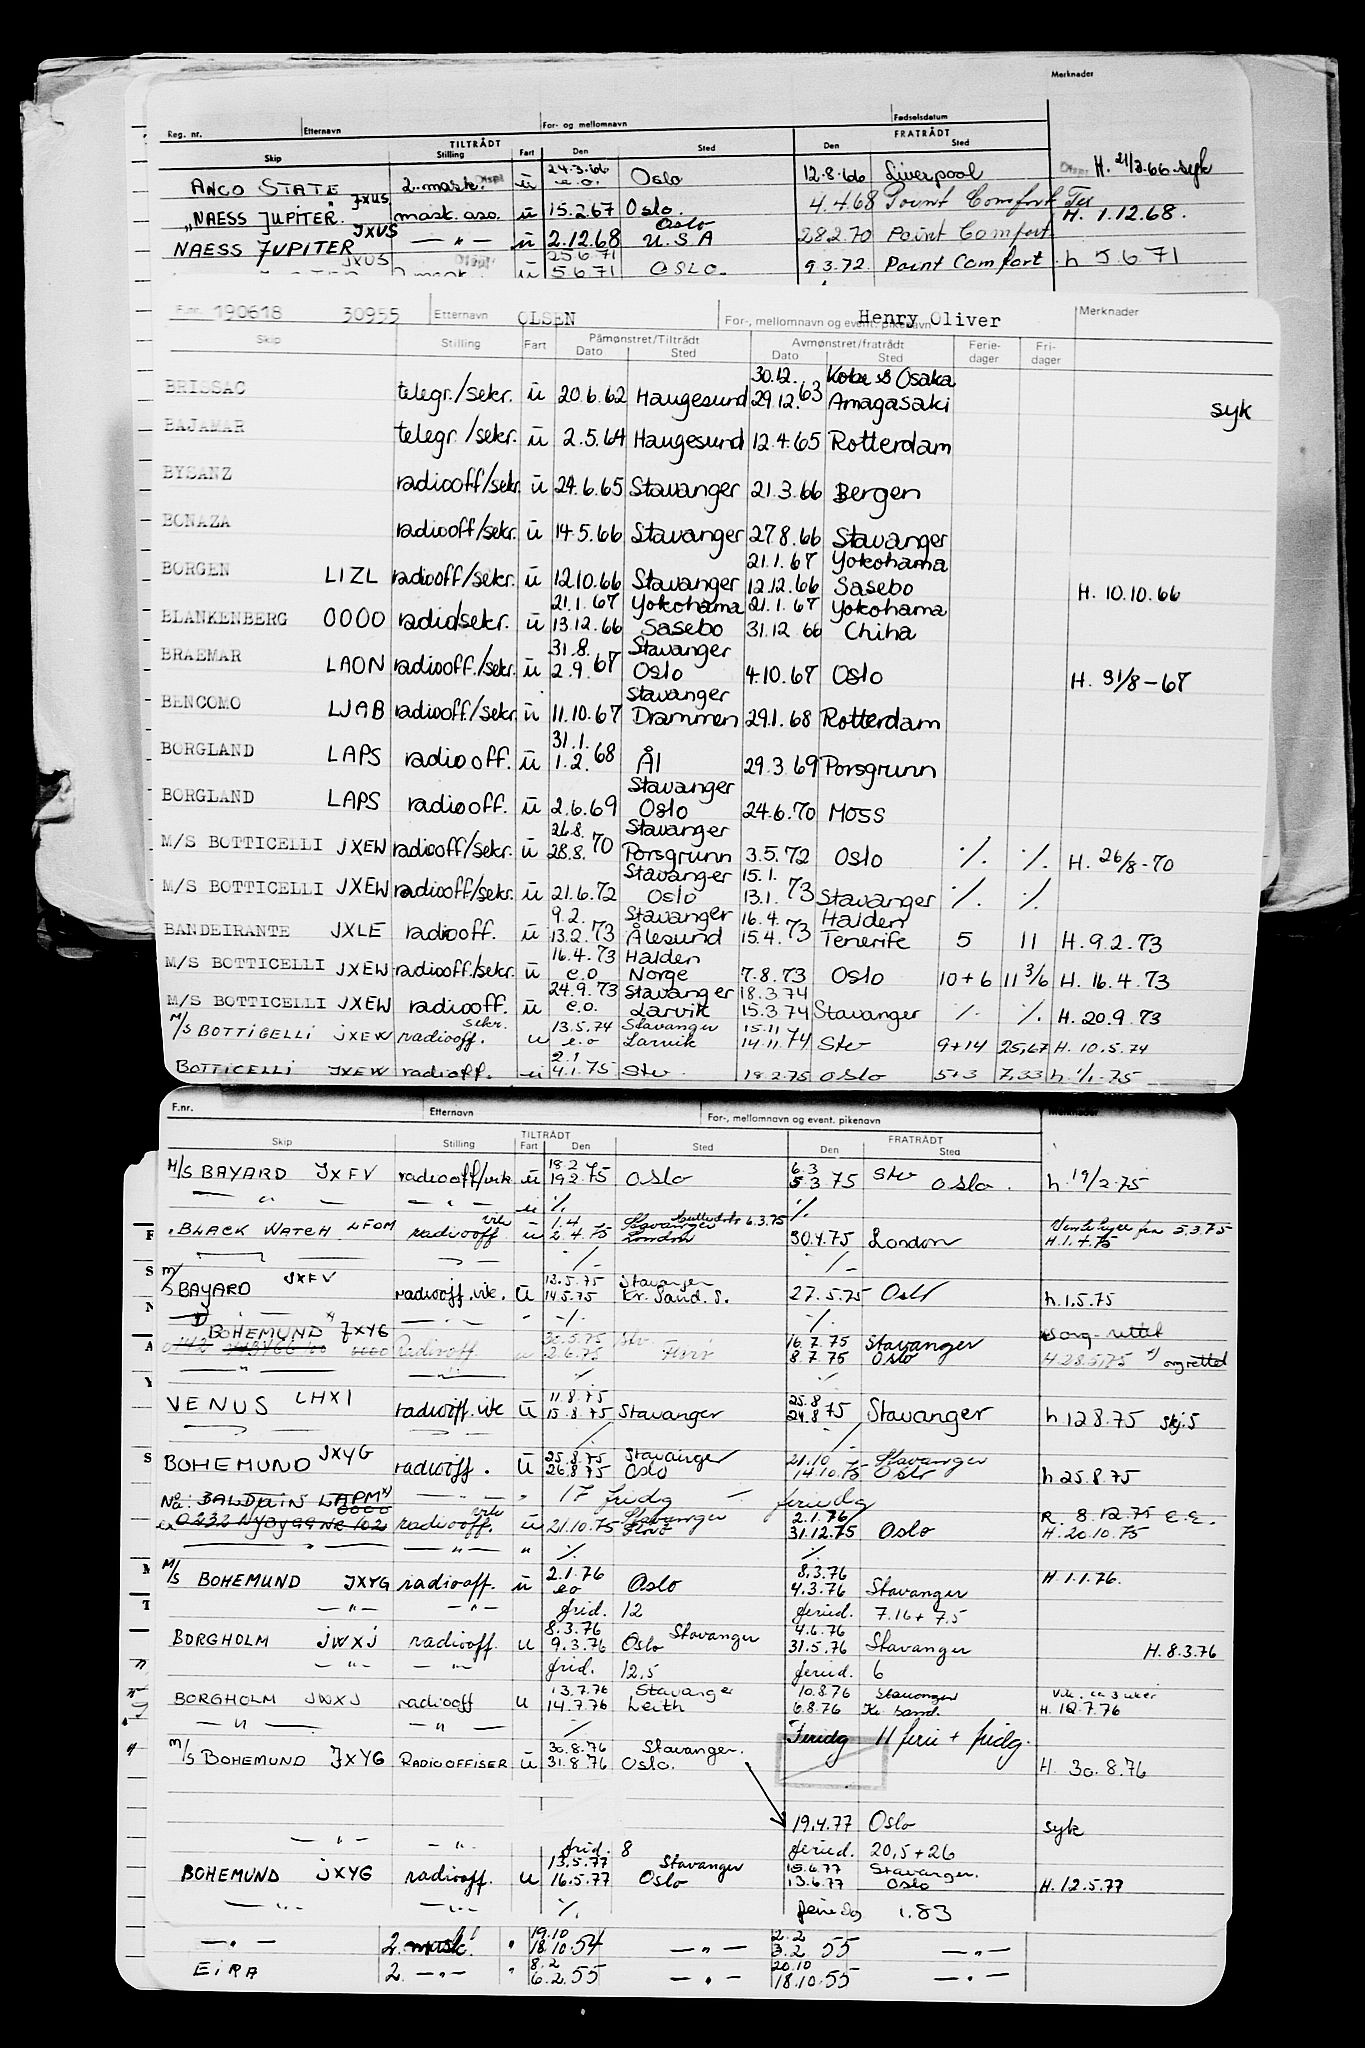 Merknader
Reg. nr. Etternavn For- og mellomnavn Fødselsdatum
TILTRÅDT FRATRÅDT
Skip Stilling Fart Den Sted Den Sted
ANCO STATE 2. mask. ü 24.3.66 e.o. Oslo 12.8.66 Liverpool H. 21/3.66. syk
"NAESS JUPITER" JXUS mask. ass. ü 15.2.67 Oslo. 4.4.68 Point Comfort Tex H. 1.12.68.
NAESS JUPITER JXUS — " — ü 2.12.68 Oslo U.S.A 28.2.70 Point Comfort
JXUS ü 25.6.71 5.6.71 OSLO. 9.3.72 Point Comfort. h 5.6.71
F.nr. 190618 30955 Etternavn OLSEN For-, mellomnavn og event. pikenavn Henry Oliver Merknader
Skip Stilling Fart Påmønstret/Tiltrådt Dato Sted Avmønstret/fratrådt Dato Sted Ferie-dager Fri-dager
30.12. Kobe & Osaka
BRISSAC telegr./sekr. ü 20.6.62 Haugesund 29.12.63 Amagasaki syk
BAJAMAR telegr/sekr. ü 2.5.64 Haugesund 12.4.65 Rotterdam
BYSANZ radiooff/sekr. ü 24.6.65 Stavanger 21.3.66 Bergen
BONAZA radiooff/sekr. ü 14.5.66 Stavanger 27.8.66 Stavanger
21.1.67 Yokohama
BORGEN LIZL radiooff/sekr. ü 12.10.66 Stavanger 12.12.66 Sasebo H. 10.10.66
21.1.67 Yokohama 21.1.67 Yokohama
BLANKENBERG OOOO radio/sekr. ü 13.12.66 Sasebo 31.12.66 Chiba
31.8. Stavanger
BRAEMAR LAON radiooff./sekr. ü 2.9.67 Oslo 4.10.67 Oslo H. 31/8-67
Stavanger
BENCOMO LJAB radiooff/sekr. ü 11.10.67 Drammen 29.1.68 Rotterdam
31.1.
BORGLAND LAPS radiooff. ü 1.2.68 Ål 29.3.69 Porsgrunn
Stavanger
BORGLAND LAPS radiooff. ü 2.6.69 Oslo 24.6.70 Moss
26.8. Stavanger
M/S BOTTICELLI JXEW radiooff/sekr. ü 28.8.70 Porsgrunn 3.5.72 Oslo ·/. ·/. H. 26/8-70
Stavanger 15.1.
M/S BOTTICELLI JXEW radiooff/sekr. ü 21.6.72 Oslo 13.1.73 Stavanger ·/. ·/.
9.2. Stavanger 16.4. Halden
BANDEIRANTE JXLE radiooff. ü 13.2.73 Ålesund 15.4.73 Tenerife 5 11 H. 9.2.73
16.4.73 Halden
M/S BOTTICELLI JXEW radiooff./sekr. ü e.o Norge 7.8.73 Oslo 10+6 11 3/6 H. 16.4.73
24.9.73 Stavanger 18.3.74
M/S BOTTICELLI JXEW radiooff. ü e.o. Larvik 15.3.74 Stavanger ·/. ·/. H. 20.9.73
sekr. 13.5.74 Stavanger 15.11
M/S BOTTICELLI JXEW radiooff. u e.o Larvik 14.11.74 Stv 9+14 25,67 H. 10.5.74
2.1
BOTTICELLI JXEW radioff. ü 4.1.75 Stv. 18.2.75 Oslo 5+3 7,33 h. 1/1-75
F.nr. Etternavn For-, mellomnavn og event. pikenavn Merknader
TILTRÅDT FRATRÅDT
Skip Stilling Fart Den Sted Den Sted
18.2 6.3 Stv
M/S BAYARD JXFV radiooff/vik ü 19.2.75 Oslo 5.3.75 Oslo. h. 19/2-75
— " — — " — ü ·/. ·/.
vik 1.4 Stavanger 6.3.75 Ventehyre fra 5.3.75
BLACK WATCH LFOM radiooff ü 2.4.75 London 30.4.75 London H.1.4.75
— " — — " — ·/. ·/.
12.5.75 Stavanger
M/S BAYARD JXFV radiooff. vik. ü 14.5.75 Kr. Sand. S. 27.5.75 Oslo h. 1.5.75
— " — — " — ·/. ·/.
BOHEMUND JXYG 30.5.75 Stv. 16.7.75 Stavanger
0000 Radiooff. u 2.6.75 8.7.75 Oslo H.28.5.75 x) omrettet
— " — — " — ·/. ·/.
11.8.75 25.8
VENUS LHXI radiooff. vik ü 15.8.75 Stavanger 24.8.75 Stavanger h 12.8.75 skj.5
— " — ·/. ·/.
25.8.75 Stavanger 21.10 Stavanger
BOHEMUND JXYG radiooff. ü 26.8.75 Oslo 14.10.75 Oslo h 25.8.75
— " — " 17 fridg — feriedg
BALDUIN LAPM x) 0000 vik Stavanger 2.1.76 R. 8.12.75 E.E.
0232 Nybygg Nr 102 radiooff. ü 21.10.75 31.12.75 Oslo H. 20.10.75
— " — — " — " ·/. ·/.
2.1.76 8.3.76 H. 1.1.76.
M/S BOHEMUND JXYG radiooff. ü eo Oslo 4.3.76 Stavanger
— " — — " — frid. 12 feried. 7.16 + 7.5
8.3.76 Stavanger 4.6.76
BORGHOLM JWXJ radiooff. u 9.3.76 Oslo 31.5.76 Stavanger H. 8.3.76
— " — — " — frid. 12.5 feried. 6
13.7.76 Stavanger 10.8.76 Stavanger Vik. ca 3 uker
BORGHOLM JWXJ radiooff u 14.7.76 Leith 6.8.76 Kr. Sand. H. 12.7.76
— " — — " — ·/. Feridg 11 ferie + fridg.
30.8.76 Stavanger.
M/S BOHEMUND JXYG RADIOOFFISER ü 31.8.76 Oslo. H. 30.8.76
19.4.77 Oslo syk
— " — — " — frid. 8 feried. 20,5+26
13.5.77 Stavanger 15.6.77 Stavanger.
BOHEMUND JXYG radiooff. u 16.5.77 Oslo 13.6.77 Oslo H. 12.5.77
— " — — " — ·/. feriedg 1.83
— " — 2. mask. " 19.10 18.10.54 — " — 2.2 3.2 55 — " —
EIRA 2. — " — " 8.2 6.2.55 — " — 20.10 18.10.55 — " —